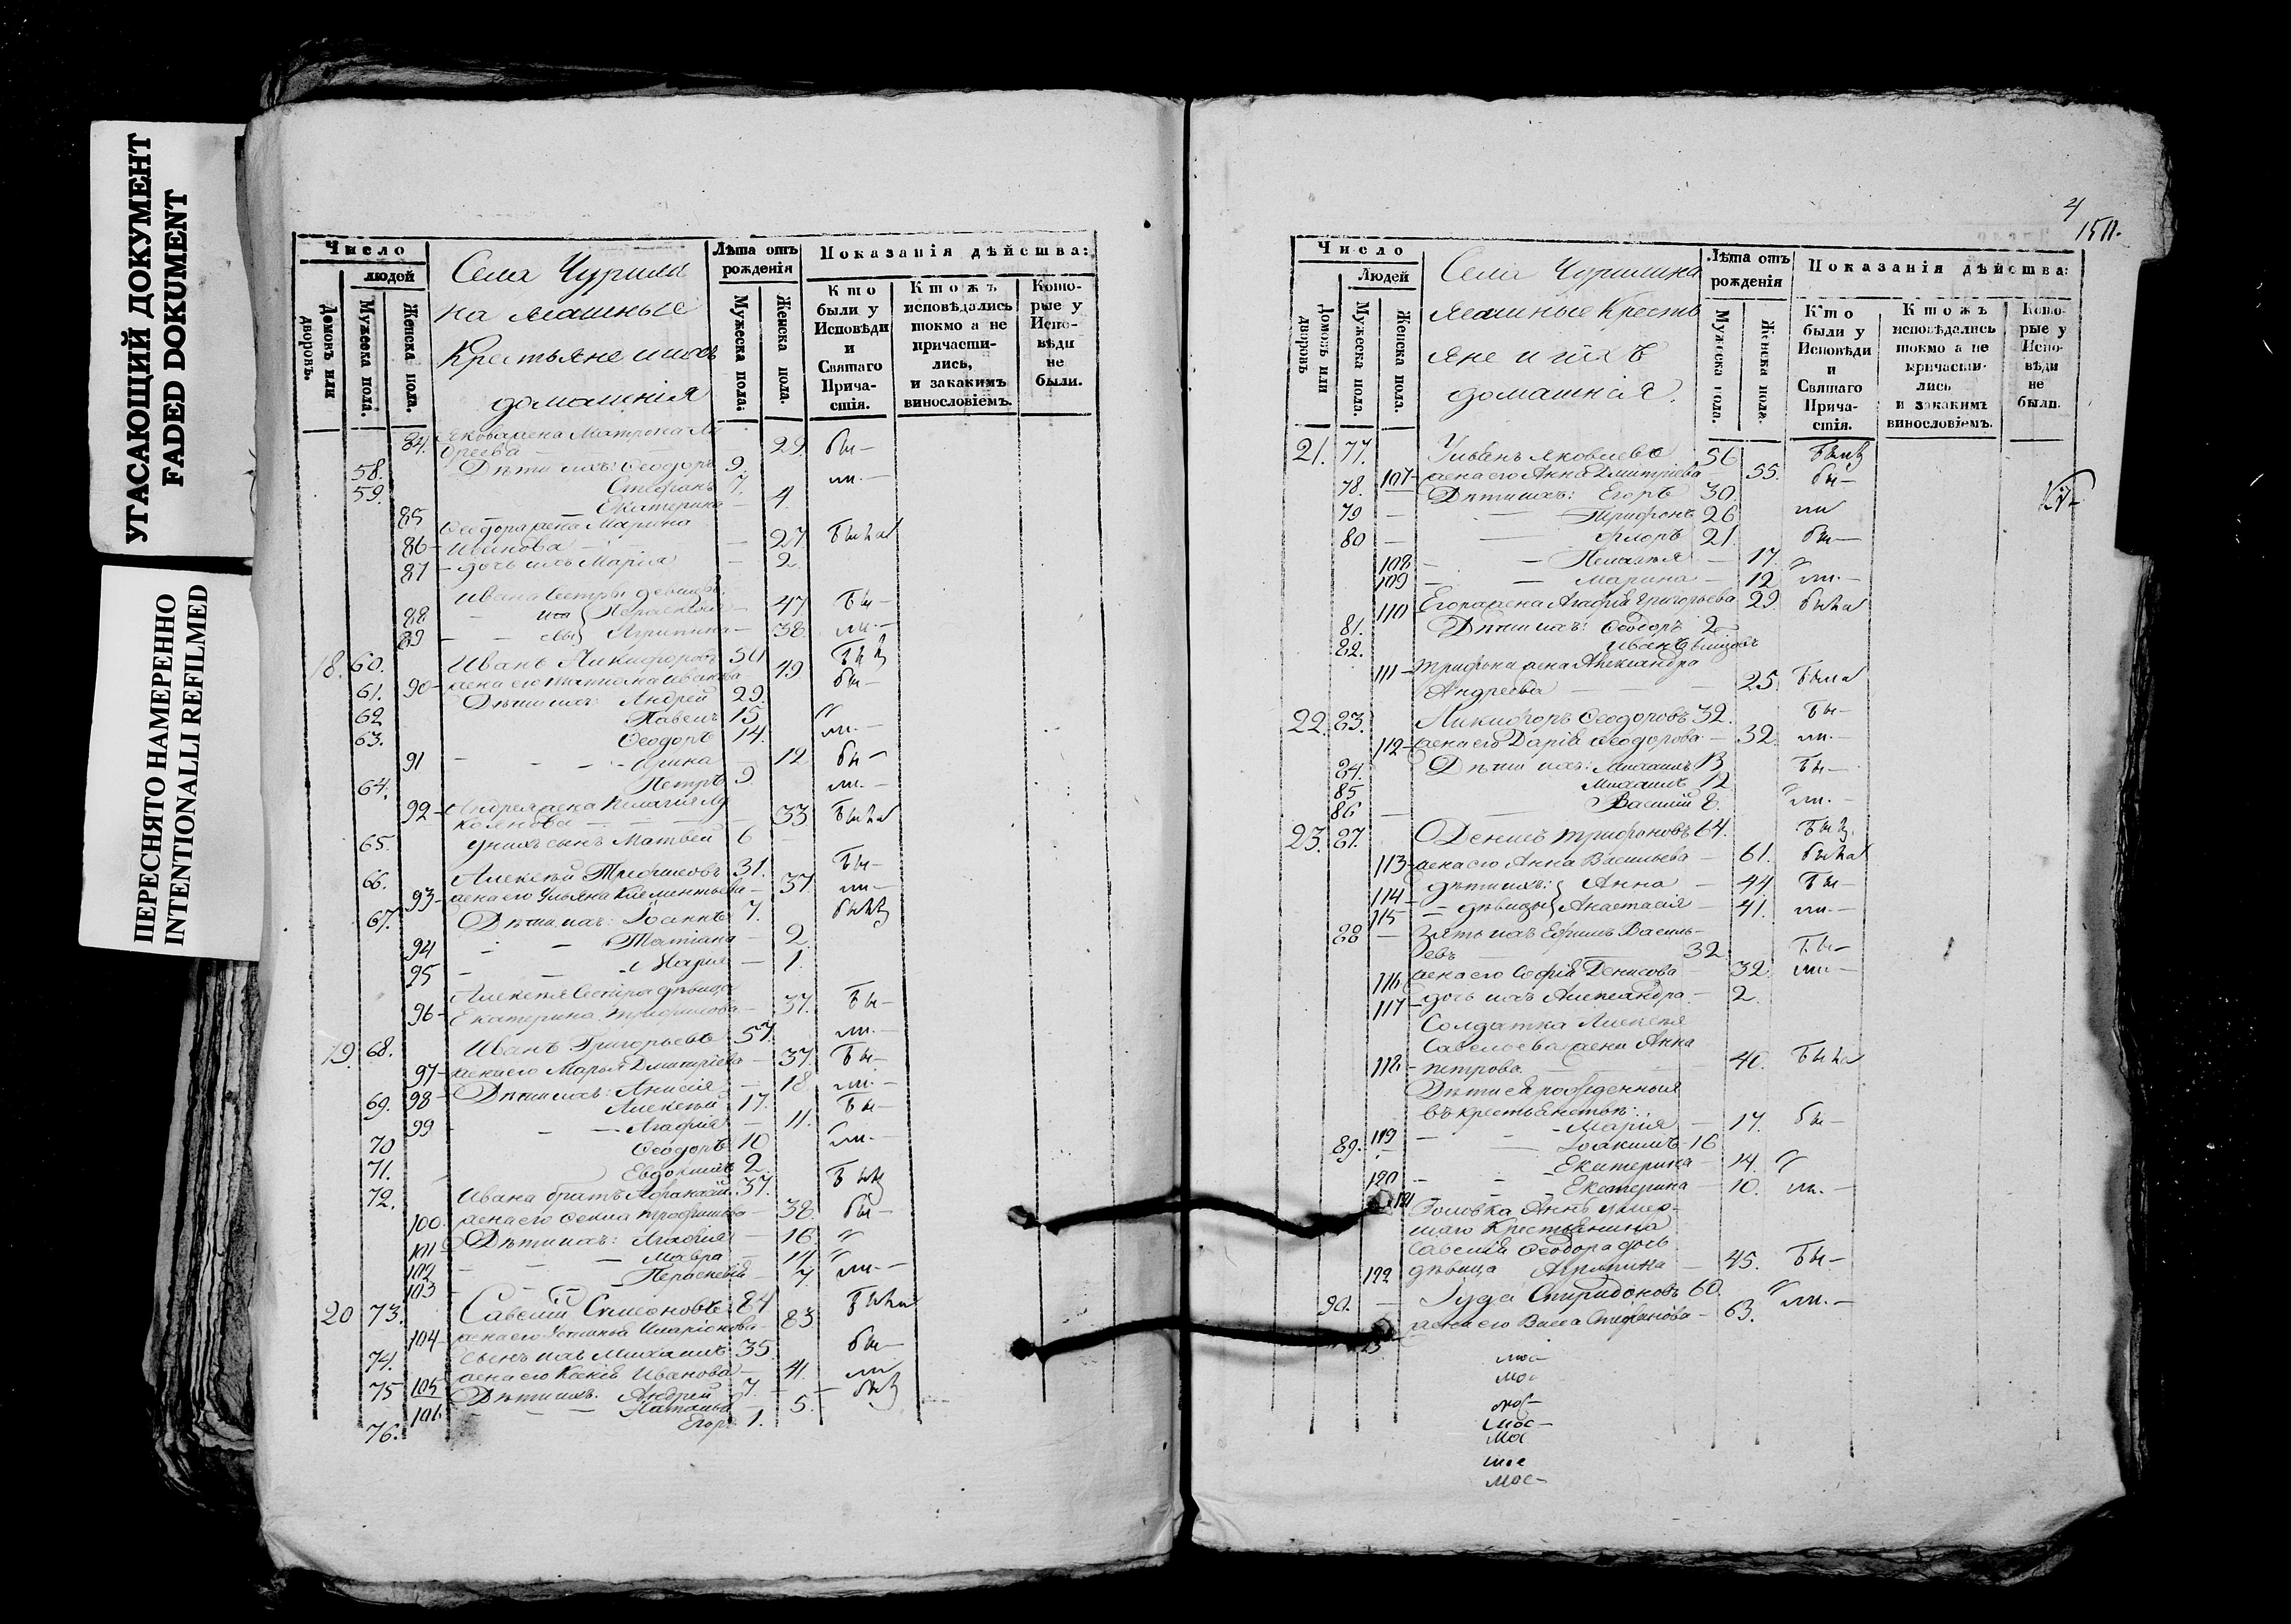 УГАСАЮЩИЙ ДОКУМЕНТ
FADED DOKUMENT
ПЕРЕСНЯТО НАМЕРЕННО
INTENTIONALLI REFILMED
Число
людей
Домовъ или дворовъ.
Мужеска пола.
Женска пола.
Села Чурили
на яшашныѣ
Крестьяне и ихъ
домашнія
Лѣта отъ рождения
Мужеска пола.
Женска пола.
Показанія дѣйства:
Кто были у Исповѣди и Святаго Причастія.
Ктожъ исповѣдались токмо а не причастились, и закакимъ винословіемъ.
Которые у Исповѣди не были.
84. Якова жена Матрона Ан
дреева — 29. бы—
58. Дѣти ихъ: Ѳеодоръ 9. ли.—
59. Стефанъ 7.
85 — Екатерина — 4.
Ѳеодора жена Марина
86 — Иванова — 27. Были
87 — дочь ихъ Марія — 2.
Ивана сестры девицы
88 Параскевия — 47. Бы—
89 Агрипина — 38. ли.—
18. 60. Иванъ Никифоровъ 50
90 — жена его Татиана Иванова 49 бы—
61. Дѣти ихъ: Андрей 29.
62 Павелъ 15
63. Ѳеодоръ 14. ли.—
91 — Ирина 12 бы—
64. Петръ 9. ли.—
92 — Андрея жена Пелагия Лу
коянова — 33 Были
65. у нихъ сынъ Матвей 6
66. Алексѣй Трофимовъ 31. Бы—
93 — жена его Ульяна Климентьева — 37. ли—
67. Дѣти ихъ: Іоаннъ 7.
94 — Татіана — 2.
95 — Марія — 1.
Алексѣя сестра дѣвица
96 — Екатерина Трофимова — 37. Бы—
19. 68. Иванъ Григорьевъ 57. ли.—
97 — жена его Марья Дмитріева — 37. Бы—
98 — Дѣти ихъ: Анисія — 18. ли.—
69. Алексѣй 17. Бы—
99 — Агафия — 11.
70 Ѳеодоръ 10 ли.—
71. Евдокимъ 2.
72. Ивана братъ Афанасій 37.
100. жена его Ѳекла Трофимова — 38. бы—
101 Дѣти ихъ: Агафия — 16. "
102 — Мавра — 14. "
103 — Параскевія — 7. ли.—
20 73. Савелій Симеоновъ 84
104 — жена его Устинья Иларіонова — 83
74. сынъ ихъ Михаилъ 35. бы—
105 жена его Ксенія Иванова — 41. ли
75 Дѣти ихъ: Андрей 7.
106 — Наталья — 5.
76. Егоръ 1.
4
150.
Число
Людей
Домовъ или дворовъ
Мужеска пола.
Женска пола.
Села Чурилина
яшашные Кресть
яне и ихъ
домашнія.
Лѣта отъ рожденія
Мужеска пола.
Женска пола.
Показанія дѣйства:
Кто были у Исповѣди и Святаго Причастія.
Ктожъ исповѣдались токмо а не причастились и закакимъ винословіемъ.
Которые у Исповѣди не были.
21. 77. Ульянъ Яковлевъ 56
107 — жена его Анна Дмитріева — 55. бы—
78. Дѣти ихъ: Егоръ 30.
79 — Трифонъ 26 ли
80 — Флоръ 21. бы—
108 — Пелагѣя — 17. "
109 — Марина — 12 ли.—
110 Егора жена Агафія Григорьева 29. была
81. Дѣти ихъ: Ѳеодоръ 2
82. Иванъ
111 — Трифона жена Александра
Андреева — 25. Была
22. 83. Никифоръ Ѳеодоровъ 32. Бы—
112 — жена его Дарія Ѳеодорова — 32. ли.—
84. Дѣти ихъ: Михаилъ 13 Бы—
85 Михаилъ 12
86 — Василій 8. ли.—
23. 87. Денисъ Трифоновъ 64.
113 — жена его Анна Васильева — 61. была
114 — дѣти ихъ: Анна — 44. Бы—
115 — дѣвицы Анастасія — 41. ли.—
88 — Зять ихъ Ефимъ Василь-
евъ — 32. Бы—
116 жена его Софія Денисова — 32. ли—
117 — дочь ихъ Александра — 2.
Солдатка Алексѣя
Савельева жена Анна
118 — петрова. — 40. Была
Дѣти ея рожденныя
въ крестьянствѣ:
119 — Марія — 17. бы—
89. Іоакимъ 16
120 — Екатерина — 14. "
121 — Екатерина — 10. ли.—
Золовка Аннѣ умер-
шаго Крестьянина
Савелія Ѳеодора дочь
122 дѣвица Агрипина — 45. Бы—
90. — Іуда Спиридоновъ 60. ли.—
жена его Васса Стефанова — 63.